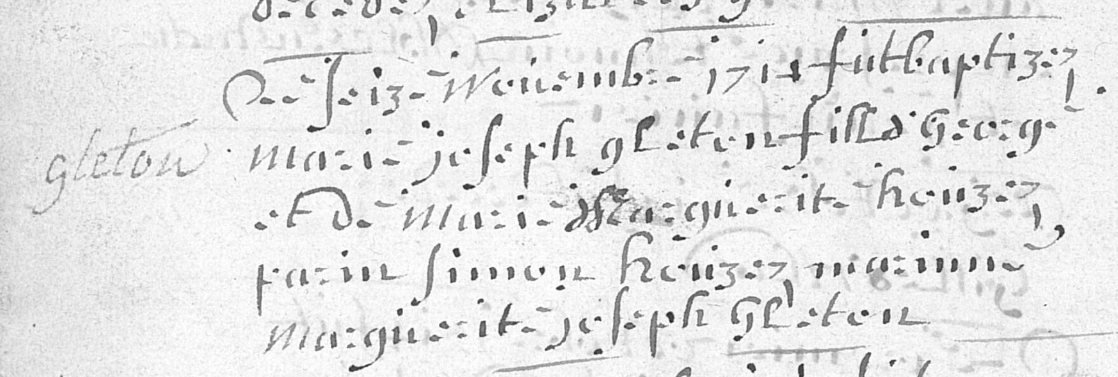 Le seize Novembre 1714 fut baptizez
gleton
marie joseph gleton fill d' georg
et de marie Marguerite heuzez
parin simon heuzez marinne
marguerite joseph gleton